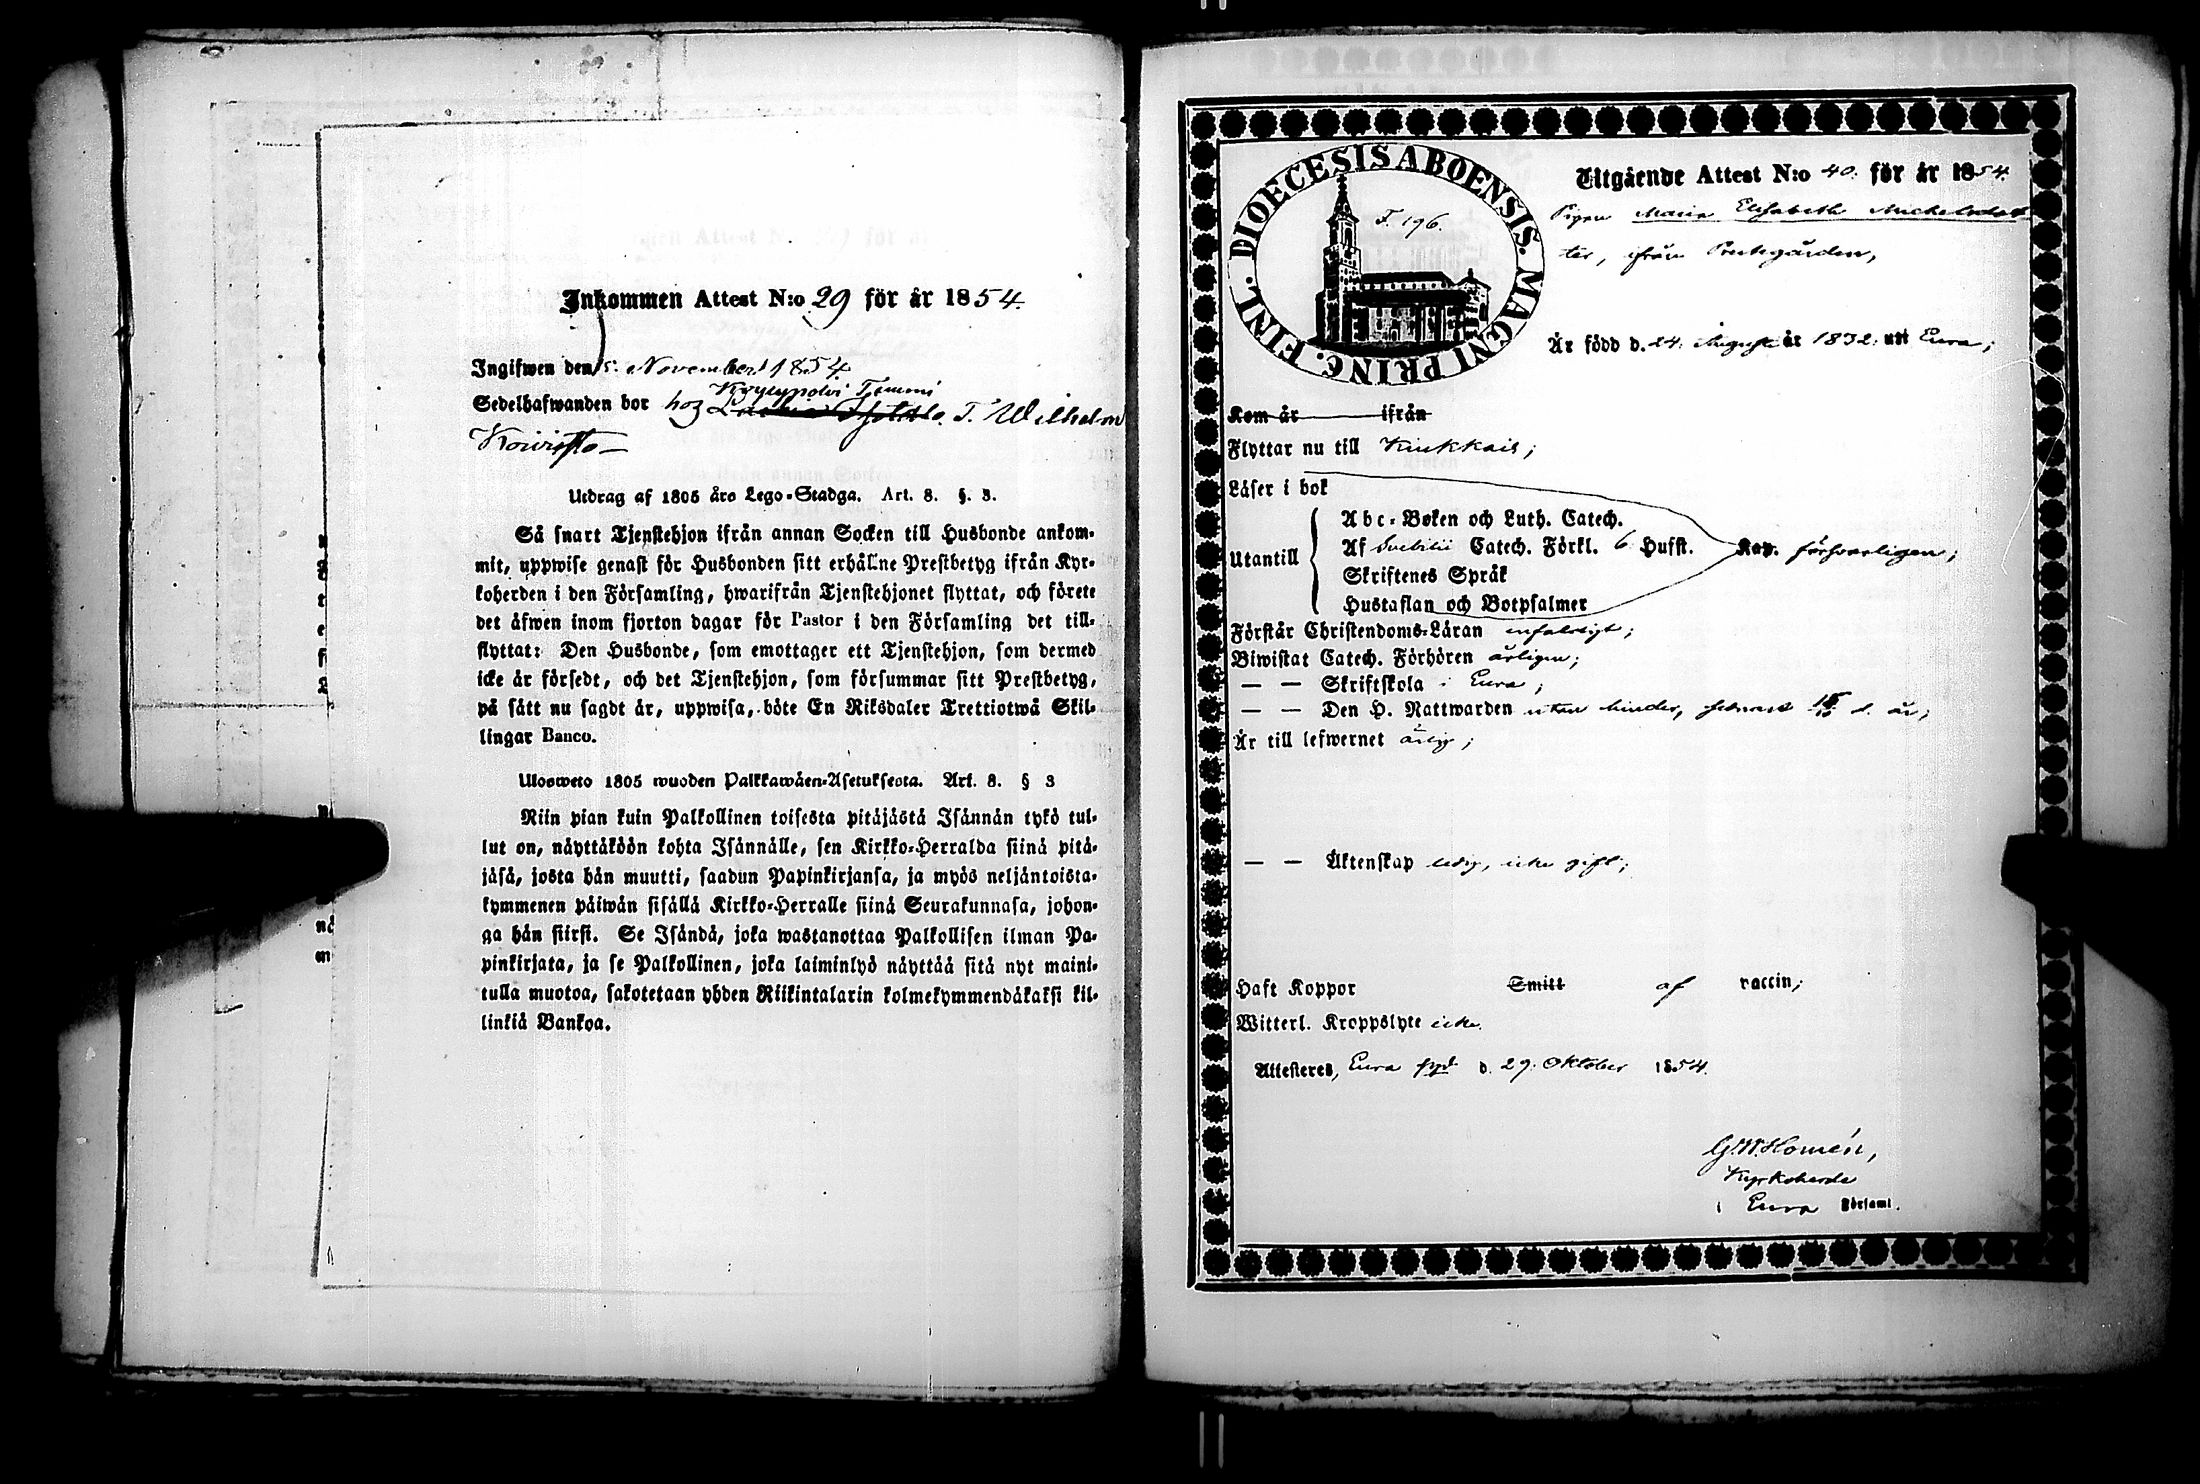 Inkommen Attest N:o 29 för år 1854.
Ingifwen den 5. November 1854
Köylypolvi Tommi
Sedelhafwanden bor hoz T. Wilhelm
Koivisto
Utdrag af 1805 års Lego-Stadga. Art. 8. §. 3.
Så snart Tjenstehjon ifrån annan Socken till Husbonde ankom-
mit, uppwise genast för Husbonden sitt erhållne Prestbetyg ifrån Kyr-
koherden i den Församling, hwarifrån Tjenstehjonet flyttat, och förete
det äfwen inom fjorton dagar för Pastor i den Församling det till-
flyttat: Den Husbonde, som emottager ett Tjenstehjon, som dermed
icke är försedt, och det Tjenstehjon, som försummar sitt Prestbetyg,
på sätt nu sagdt är, uppwisa, böte En Riksdaler Trettiotwå Skil-
lingar Banco.
Ulosweto 1805 wuoden Palkkawäen-Asetuksesta. Art. 8. § 3
Niin pian kuin Palkollinen toisesta pitäjästä Isännän tykö tul-
lut on, näyttäköön kohta Isännälle, sen Kirkko-Herralda siinä pitä-
jäsä, josta hän muutti, saadun Papinkirjansa, ja myös neljäntoista-
kymmenen päiwän sisällä Kirkko-Herralle siinä Seurakunnasa, johon-
ga hän siirsi. Se Isändä, joka wastanottaa Palkollisen ilman Pa-
pinkirjata, ja se Palkollinen, joka laiminlyö näyttää sitä nyt maini-
tulla muotoa, sakotetaan yhden Riikintalarin kolmekymmendäkaksi kil-
linkiä Bankoa.
DIOECESIS ABOENSIS. MAGNI PRINC. FINL.
F. 196.
Utgående Attest N:o 40. för år 1854.
Pigan Maria Elisabeth Michelsdot
ter, ifrån Prestegården,
Är född d. 24. Augusti år 1832. uti Eura;
Kom år ifrån
Flyttar nu till Kiukkais;
Läser i bok
Utantill
Abc-Boken och Luth. Catech.
Af Svebilii Catech. Förkl. 6 Hufst.
Skriftenes Språk
Hustaflan och Botpsalmer
Kap. försvarligen;
Förstår Christendoms-Läran enfaldigt;
Biwistat Catech. Förhören årligen;
— — Skriftskola i Eura;
— — Den H. Nattwarden utan hinder, senast d. år;
Är till lefwernet ärlig;
— — Äktenskap ledig, icke gift;
Haft Koppor Smitt af vaccin;
Witterl. Kroppslyte icke.
Attesteres, Eura d. 29. Oktober 1854.
G.W. Homén,
Kyrkoherde
i Eura Församl.